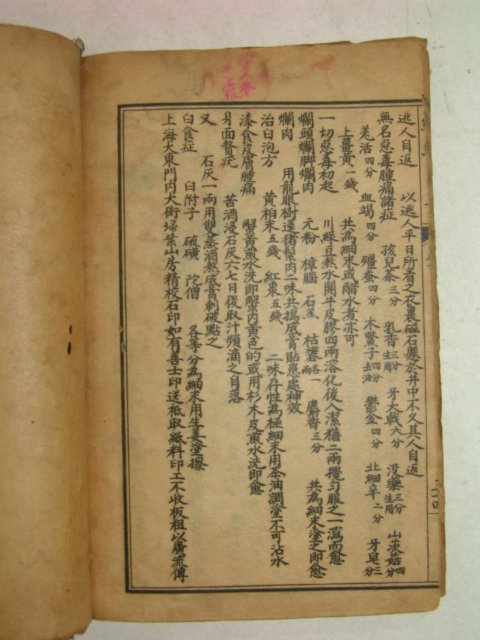 逃人自返　以逃人平日所着之衣裹磁石懸於井中不久其人自返
無名惡毒腫痛諸症　孩兒茶三分　乳香三分生用　牙大戟六分　沒藥三分生用　山茨菇四分
羌活四分　血竭四分　殭蚕四分　木鱉子四分去油　鬱金四分　北細辛二分　牙皂三分
上薑黃一錢　共為細末或醋水煮亦可
一切惡毒初起　川綠豆敖水開牛皮膠四兩溶化後入潔糖二兩攪勻服之一瀉而愈
爛頭爛脚爛肉　元粉　樟腦　石羔　枯礬各一兩　麝香三分　共為細末塗之即愈
爛肉　用龍眼樹遠猪髮肉二味共搗成膏貼患處神效
治白泡方　黃柏末五錢　紅棗五錢　二味存性為極細末用茶油調塗不可沾水
漆食皮膚腫痛　蟹黃煎水洗即蟹内黃色的或用杉木皮煎水洗即愈
身面贅疣　苦酒浸石灰六七日後取汁頻滴之自落
又　石灰一兩用雙蒸酒熬成膏刺破點之
白食症　白附子　硫磺　陀僧　各等分為細末用生姜塗擦
上海大東門内大街掃葉山房精校石印如有善士印送祗取紙料印工不收板租以廣流傳